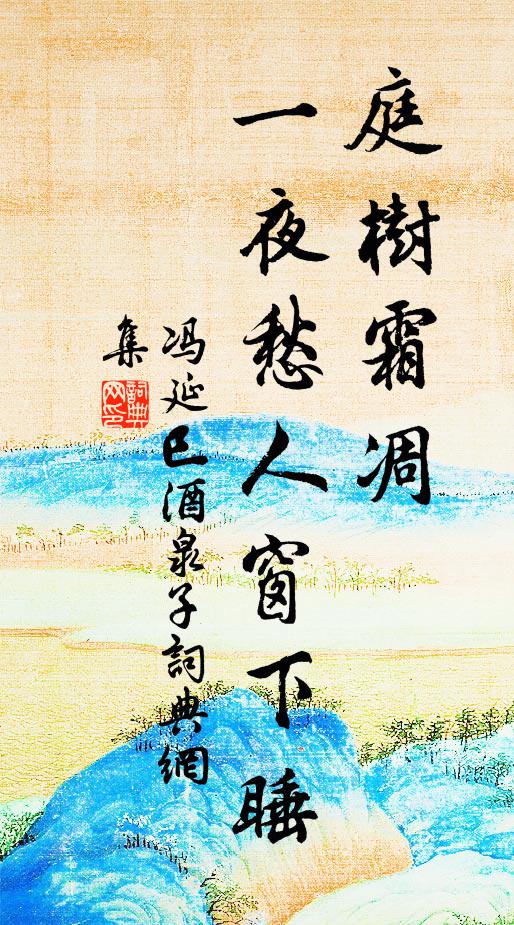 庭樹霜凋
一夜愁人窗下睡
冯延巳酒泉子詞典網
集
詞典
网印